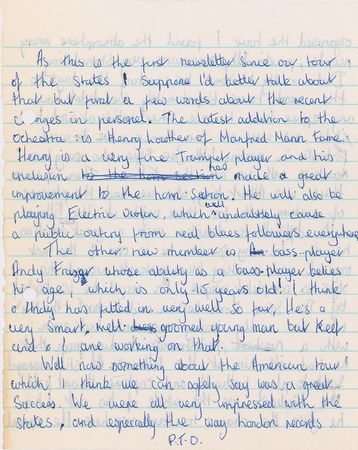 As this is the first newsletter since our tour
of the States I suppose I'd better talk about
that but first a few words about the recent
in personel. The latest addition to the
Ochestra is Henry Lowther of Manfred Mann Fame.
Henry is a very fine Trumpet player and his
inclusion to the horn section has made a great
improvement to the horn section. He will also be
playing Electric Violin, which will undoubtedly cause
a public outcry from real blues followers everywhere
The other new member is bass-player
Andy Fraser whose ability as a bass-player belies
his age, which is only 15 years old! I think
Andy has fitted in very well so far, He's a
very smart, well groomed young man but Keef
and I are working on that.
Well now something about the American tour
which I think we can safely say was a great
Success. We were all very impressed with the
States, and especially the way London records
P.T.O.